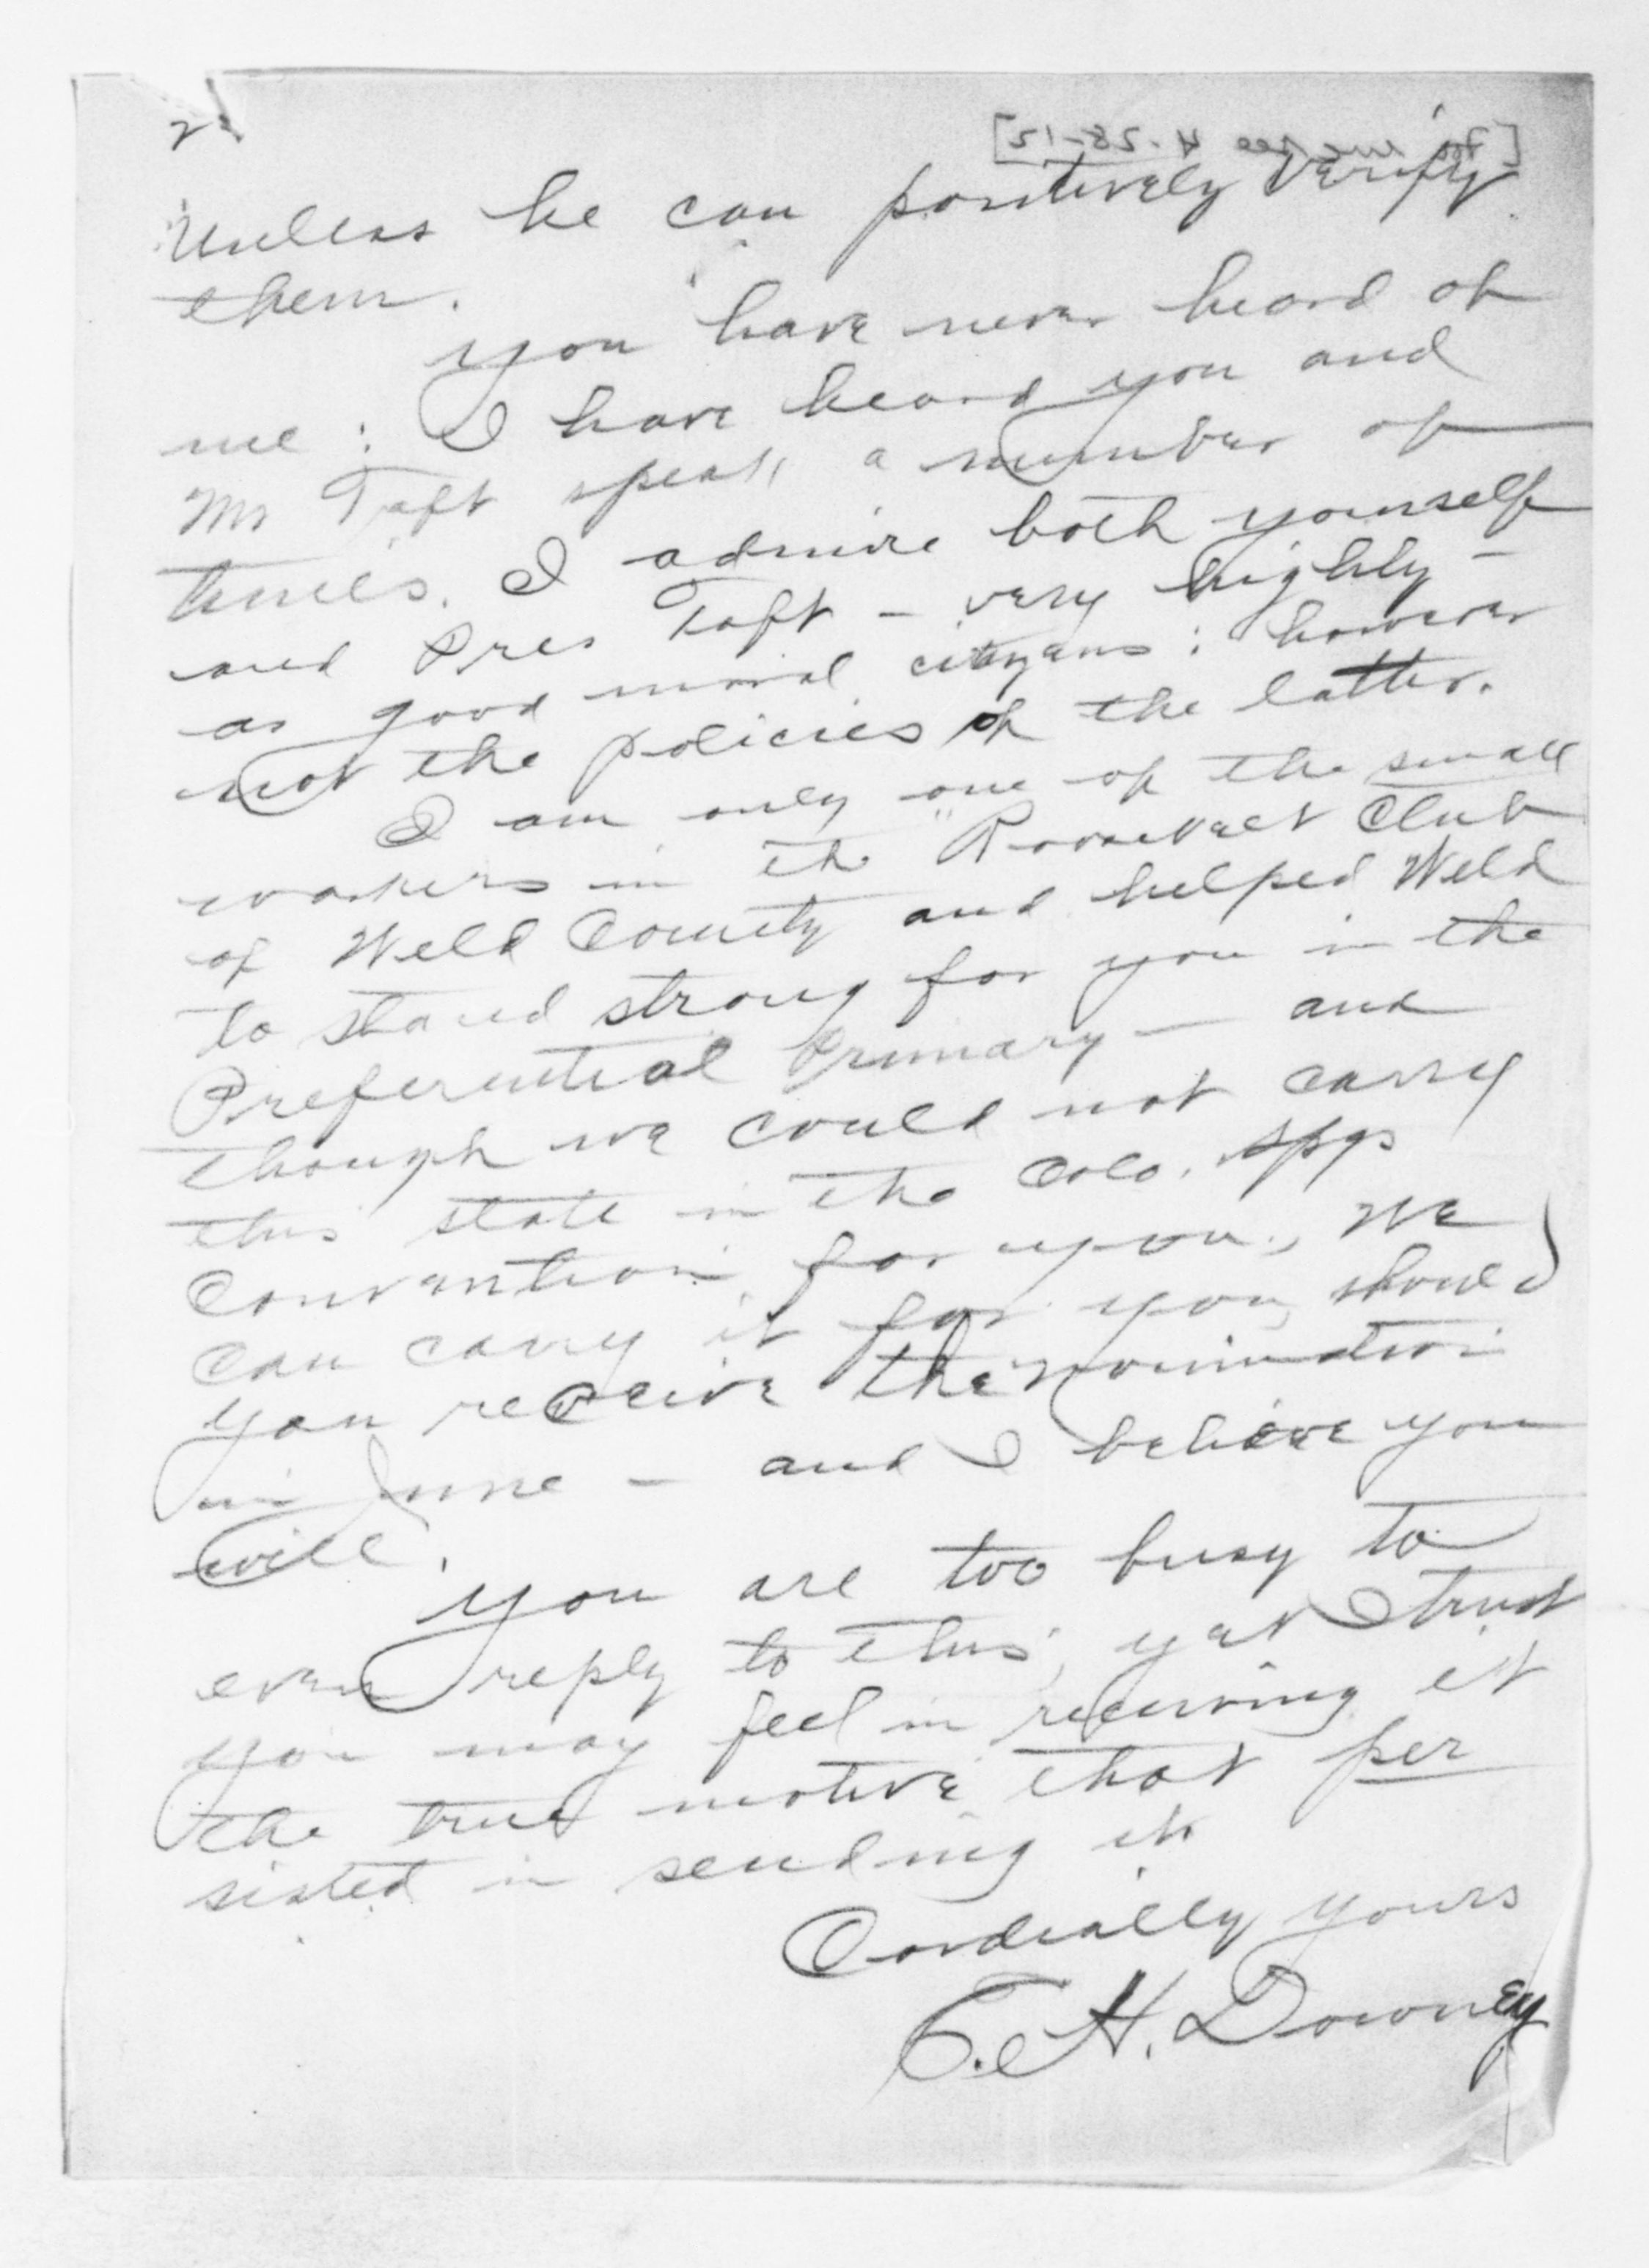 2
Unless he can positively verify
them.
You have never heard of
me : I have heard you and
Mr Taft speak a number of
times. I admire both yourself
and Pres Taft – very highly –
as good moral citizens ; however
not the policies of the latter.
I am only one of the small
workers in the "Roosevelt Club
of Weld County and helped Weld
to stand strong for you in the
Preferential Primary — and
though we could not carry
this state in the Colo. Spgs
Convention for you, we
can carry it for you, should
you receive the nomination
in June – and I believe you
will.
You are too busy to
even reply to this, yet I trust
you may feel in receiving it
the true motive that per
sisted in sending it
Cordially yours
C. H. Downey